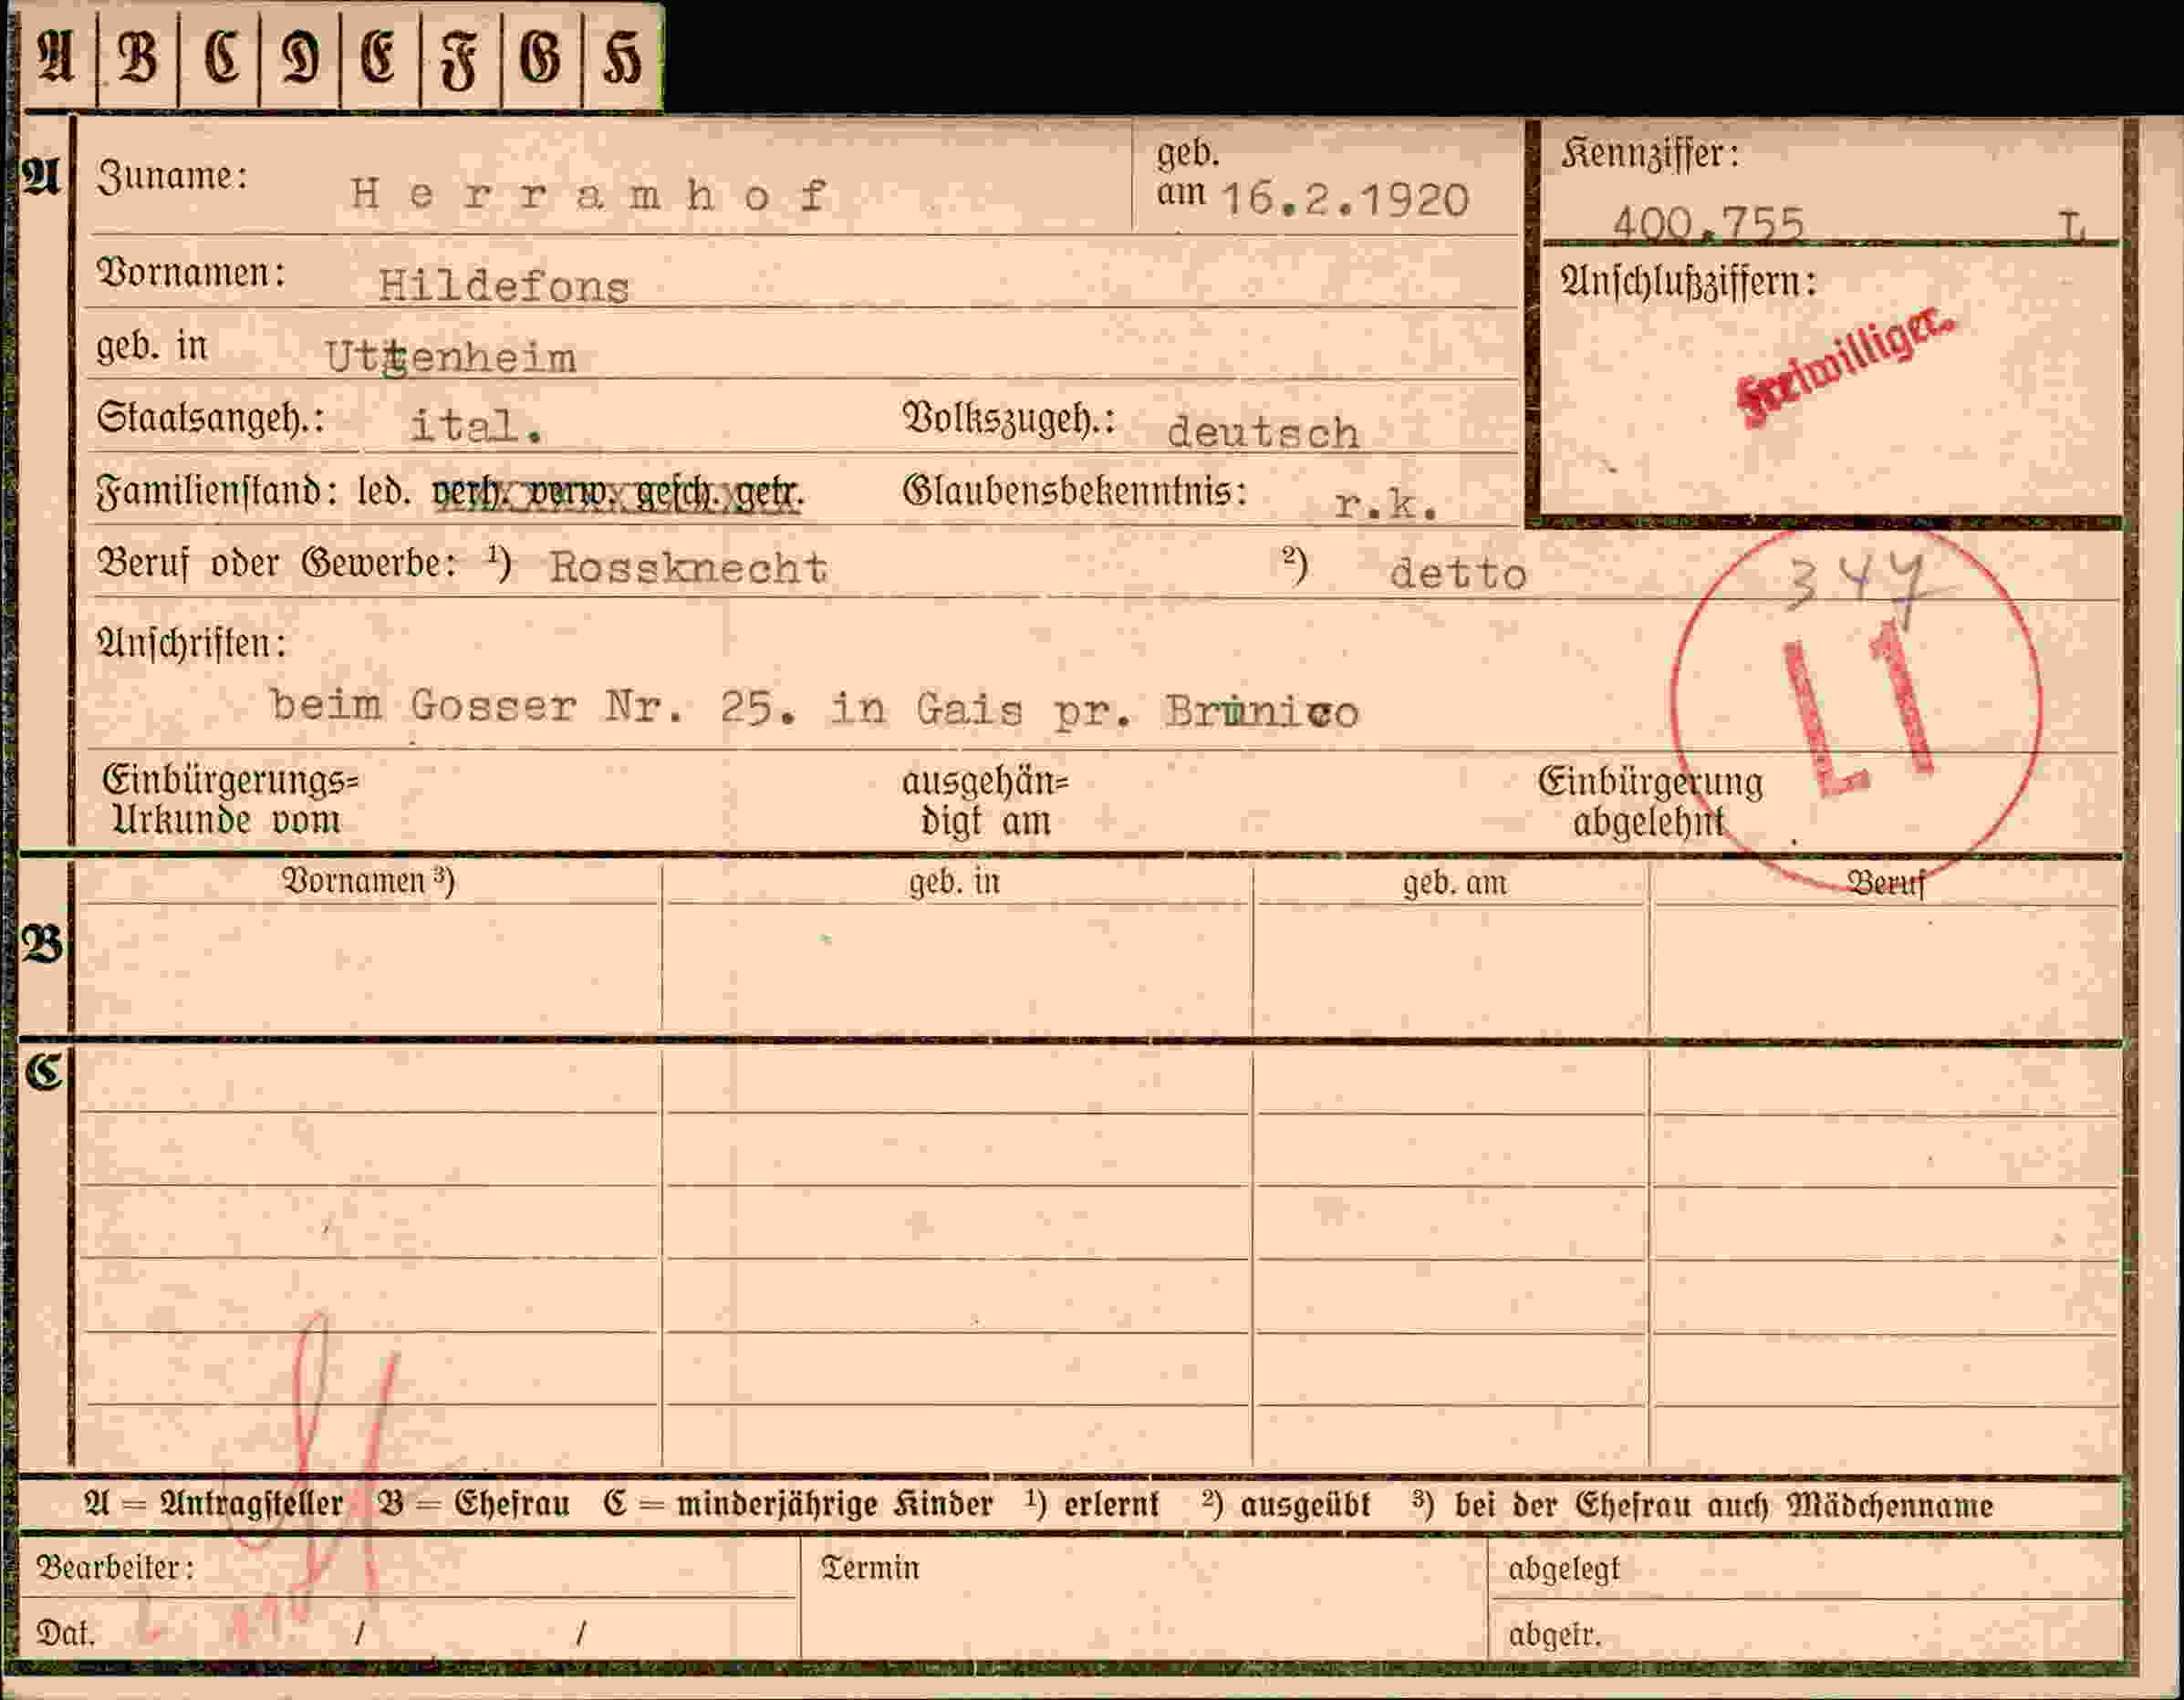 A B C D E F G H
A Zuname: Herramhof geb. am 16.2.1920 Kennziffer: 400.755 L
Vornamen: Hildefons Anschlußziffern:
Freiwilliger.
geb. in Uttenheim
Staatsangeh.: ital. Volkszugeh.: deutsch
Familienstand: led. verh. verw. gesch. getr. Glaubensbekenntnis: r.k.
Beruf oder Gewerbe: ¹) Rossknecht ²) detto
344
L1
Anschriften:
beim Gosser Nr. 25. in Gais pr. Brunico
Einbürgerungs= ausgehän= Einbürgerung
Urkunde vom digt am abgelehnt
Vornamen ³) geb. in geb. am Beruf
B
C
A = Antragsteller B = Ehefrau C = minderjährige Kinder ¹) erlernt ²) ausgeübt ³) bei der Ehefrau auch Mädchenname
Bearbeiter: Termin abgelegt
Dat. / / abgetr.